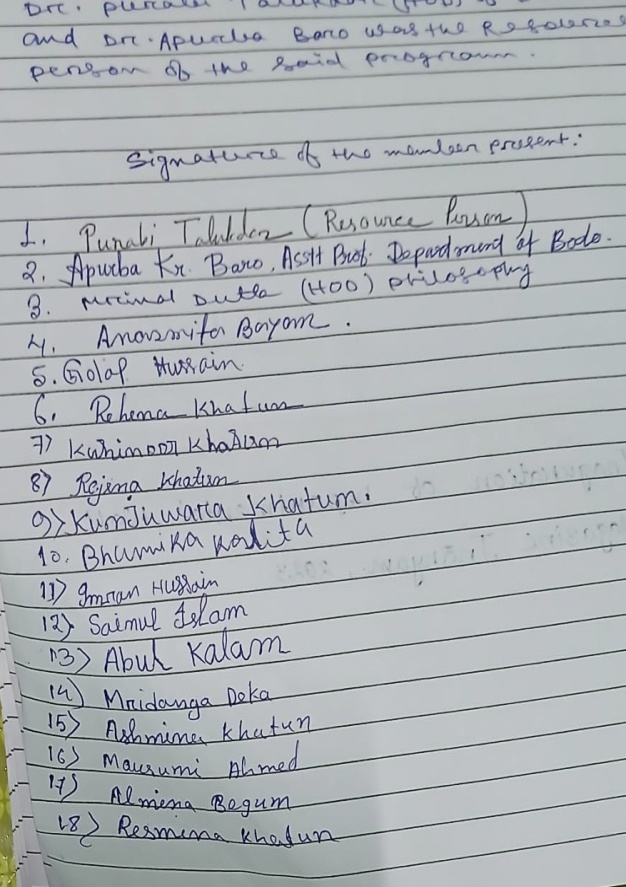 and Dr. Apurba Baro was the Resource
person of the said program.
Signature of the member present:
1. Purabi Talukdar (Resource Person)
2. Apurba Kr. Baro, Asstt Prof. Department of Bodo.
3. Mrinal Dutta (HOD) philosophy
4. Anasmita Bayan.
5. Golap Hussain.
6. Rehena Khatun
7) Kuhinoor Khatun
8) Rejina Khatun
9) KumJuwaria Khatum.
10. Bhumika Kalita
11) Imran Hussain
12) Sainul Islam
13) Abul Kalam
14) Mridanga Deka
15) Ashmina Khatun
16) Mausumi Ahmed
17) Almina Begum
18) Resmina Khatun